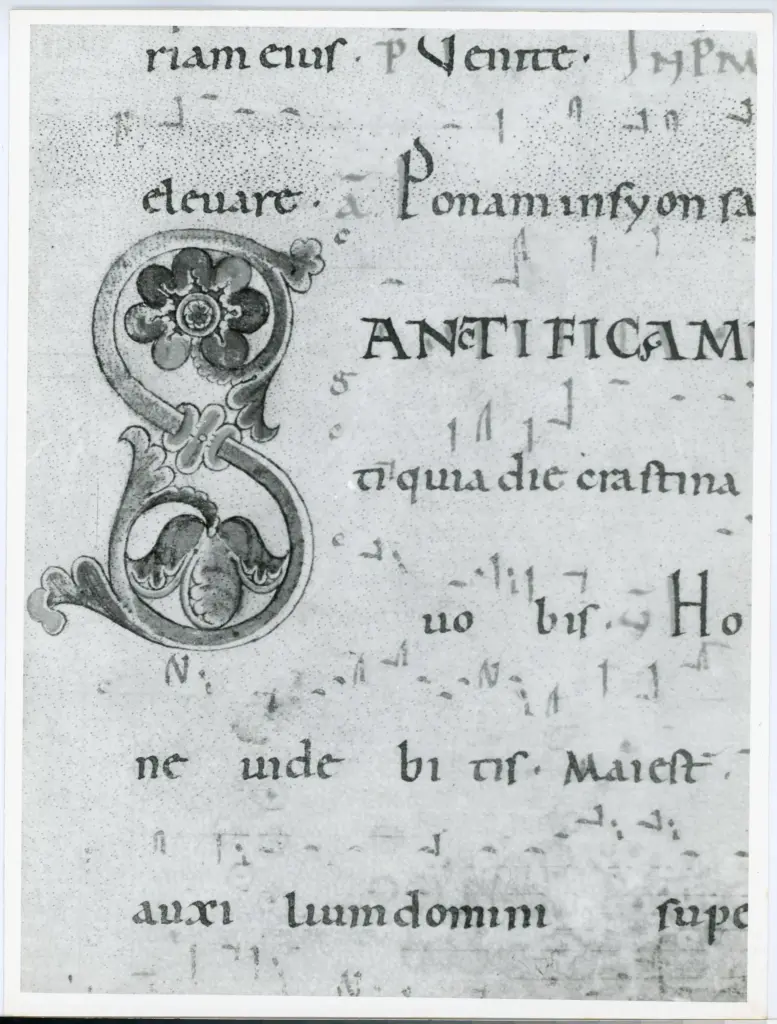 riam eius · p̄ Venite · IN PRI
eleuare · a̅ Ponam in syon sa
SANCTIFICAMI
ti quia die crastina
uo bis · Ho
ne uide bi tis · Maiest ·
auxi lium domini supe